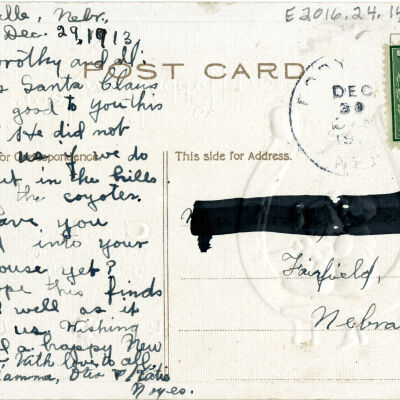 alle, Nebr.,
Dec. 29, 1913
orothy and all:
s Santa Claus
good to you this
He did not
us if we do
ut in the hills
the coyotes.
ave you
d into your
ouse yet?
ope this finds
well as it
us. Wishing
l a happy New
With love to all,
amma, Otis & Katie
Noyes.
E 2016.24.1
POST CARD
DEC
or Correspondence.
This side for Address.
Fairfield,
Nebra